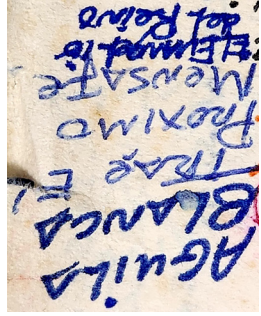 AGuiLA
BLANCA
TRAE EL
PROXIMO
MENSAJE
ELEVANGELIO
del Reino